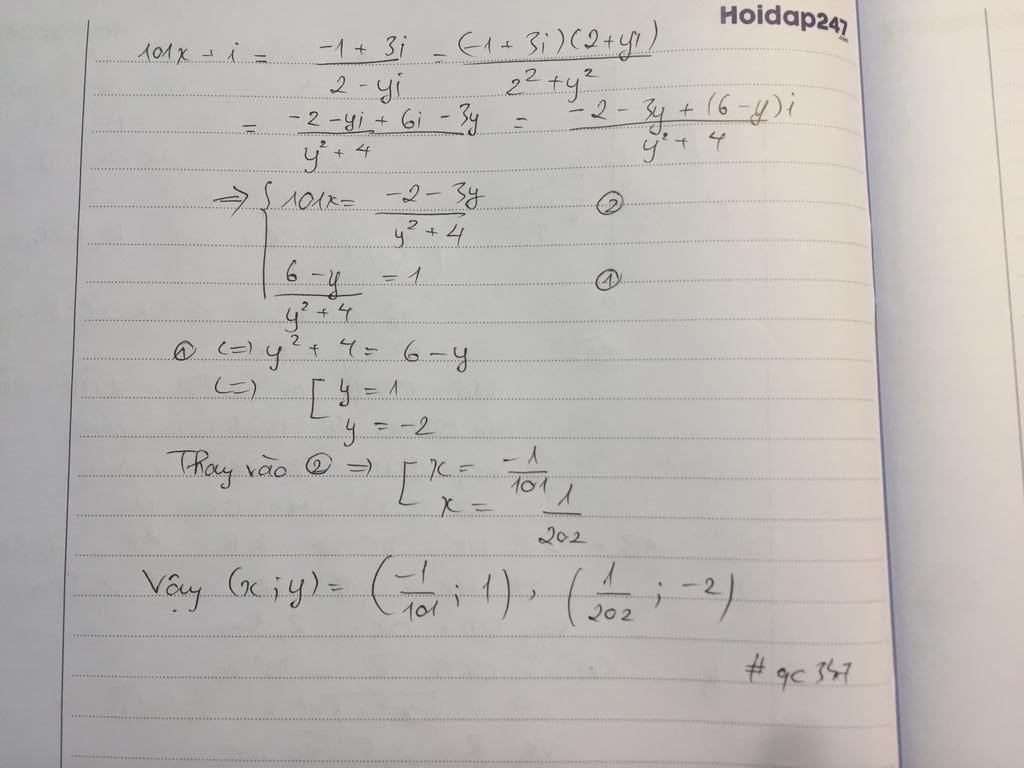 Hoidap247
.com
101x + i = \frac{-1 + 3i}{2 - yi} = \frac{(-1 + 3i)(2 + yi)}{2^2 + y^2}
= \frac{-2 - yi + 6i - 3y}{y^2 + 4} = \frac{-2 - 3y + (6 - y)i}{y^2 + 4}
=> { 101x = \frac{-2 - 3y}{y^2 + 4} ②
\frac{6 - y}{y^2 + 4} = 1 ①
① (=) y^2 + 4 = 6 - y
(=) [ y = 1
y = -2
Thay vào ② => [ x = \frac{-1}{101}
x = \frac{1}{202}
Vậy (x ; y) = (\frac{-1}{101} ; 1), (\frac{1}{202} ; -2)